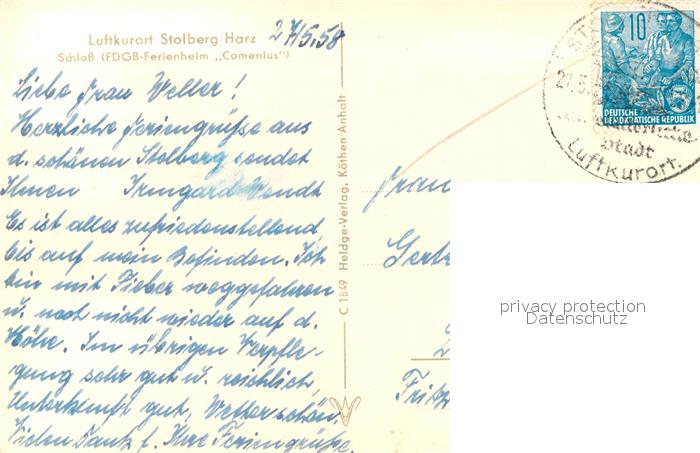 Luftkurort Stolberg/Harz
Schloß (FDGB-Ferienheim „Comenius")
27/5.58
Liebe Frau Weller!
Herzliche Feriengrüße aus
d. schönen Stolberg sendet
Ihnen Irmgard Wendt
Es ist alles zufriedenstellend
bis auf mein Befinden. Ich
bin mit Fieber weggefahren
u. noch nicht wieder auf d.
Höhe. Im übrigen Verpfle-
gung sehr gut u. reichlich,
Unterkunft gut, Wetter schön.
Vielen Dank f. Ihre Feriengrüße.
C 1849 Heldge-Verlag, Köthen/Anhalt
Frau
Gertr
Fritz
10
5
DEUTSCHE
DEMOKRATISCHE REPUBLIK
ST
Stadt
Luftkurort.
privacy protection
Datenschutz